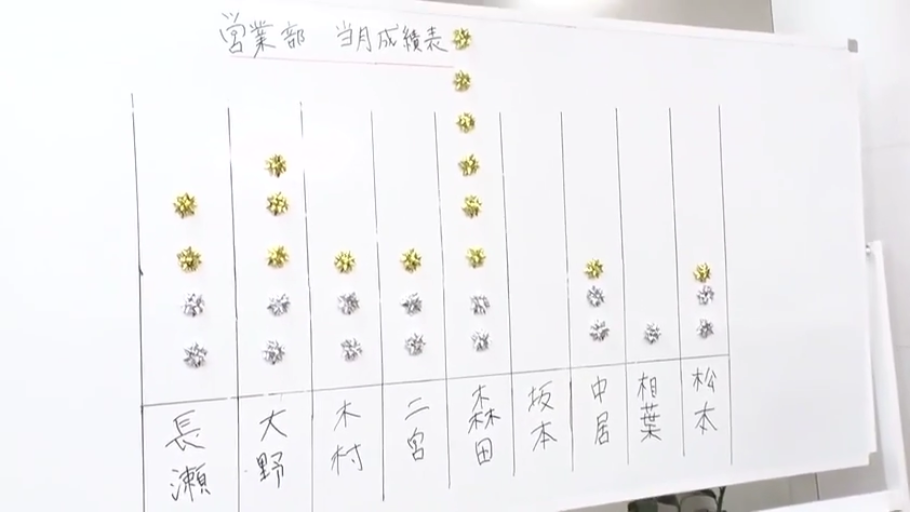 営業部 当月成績表
長瀬
大野
木村
二宮
森田
坂本
中居
相葉
松本